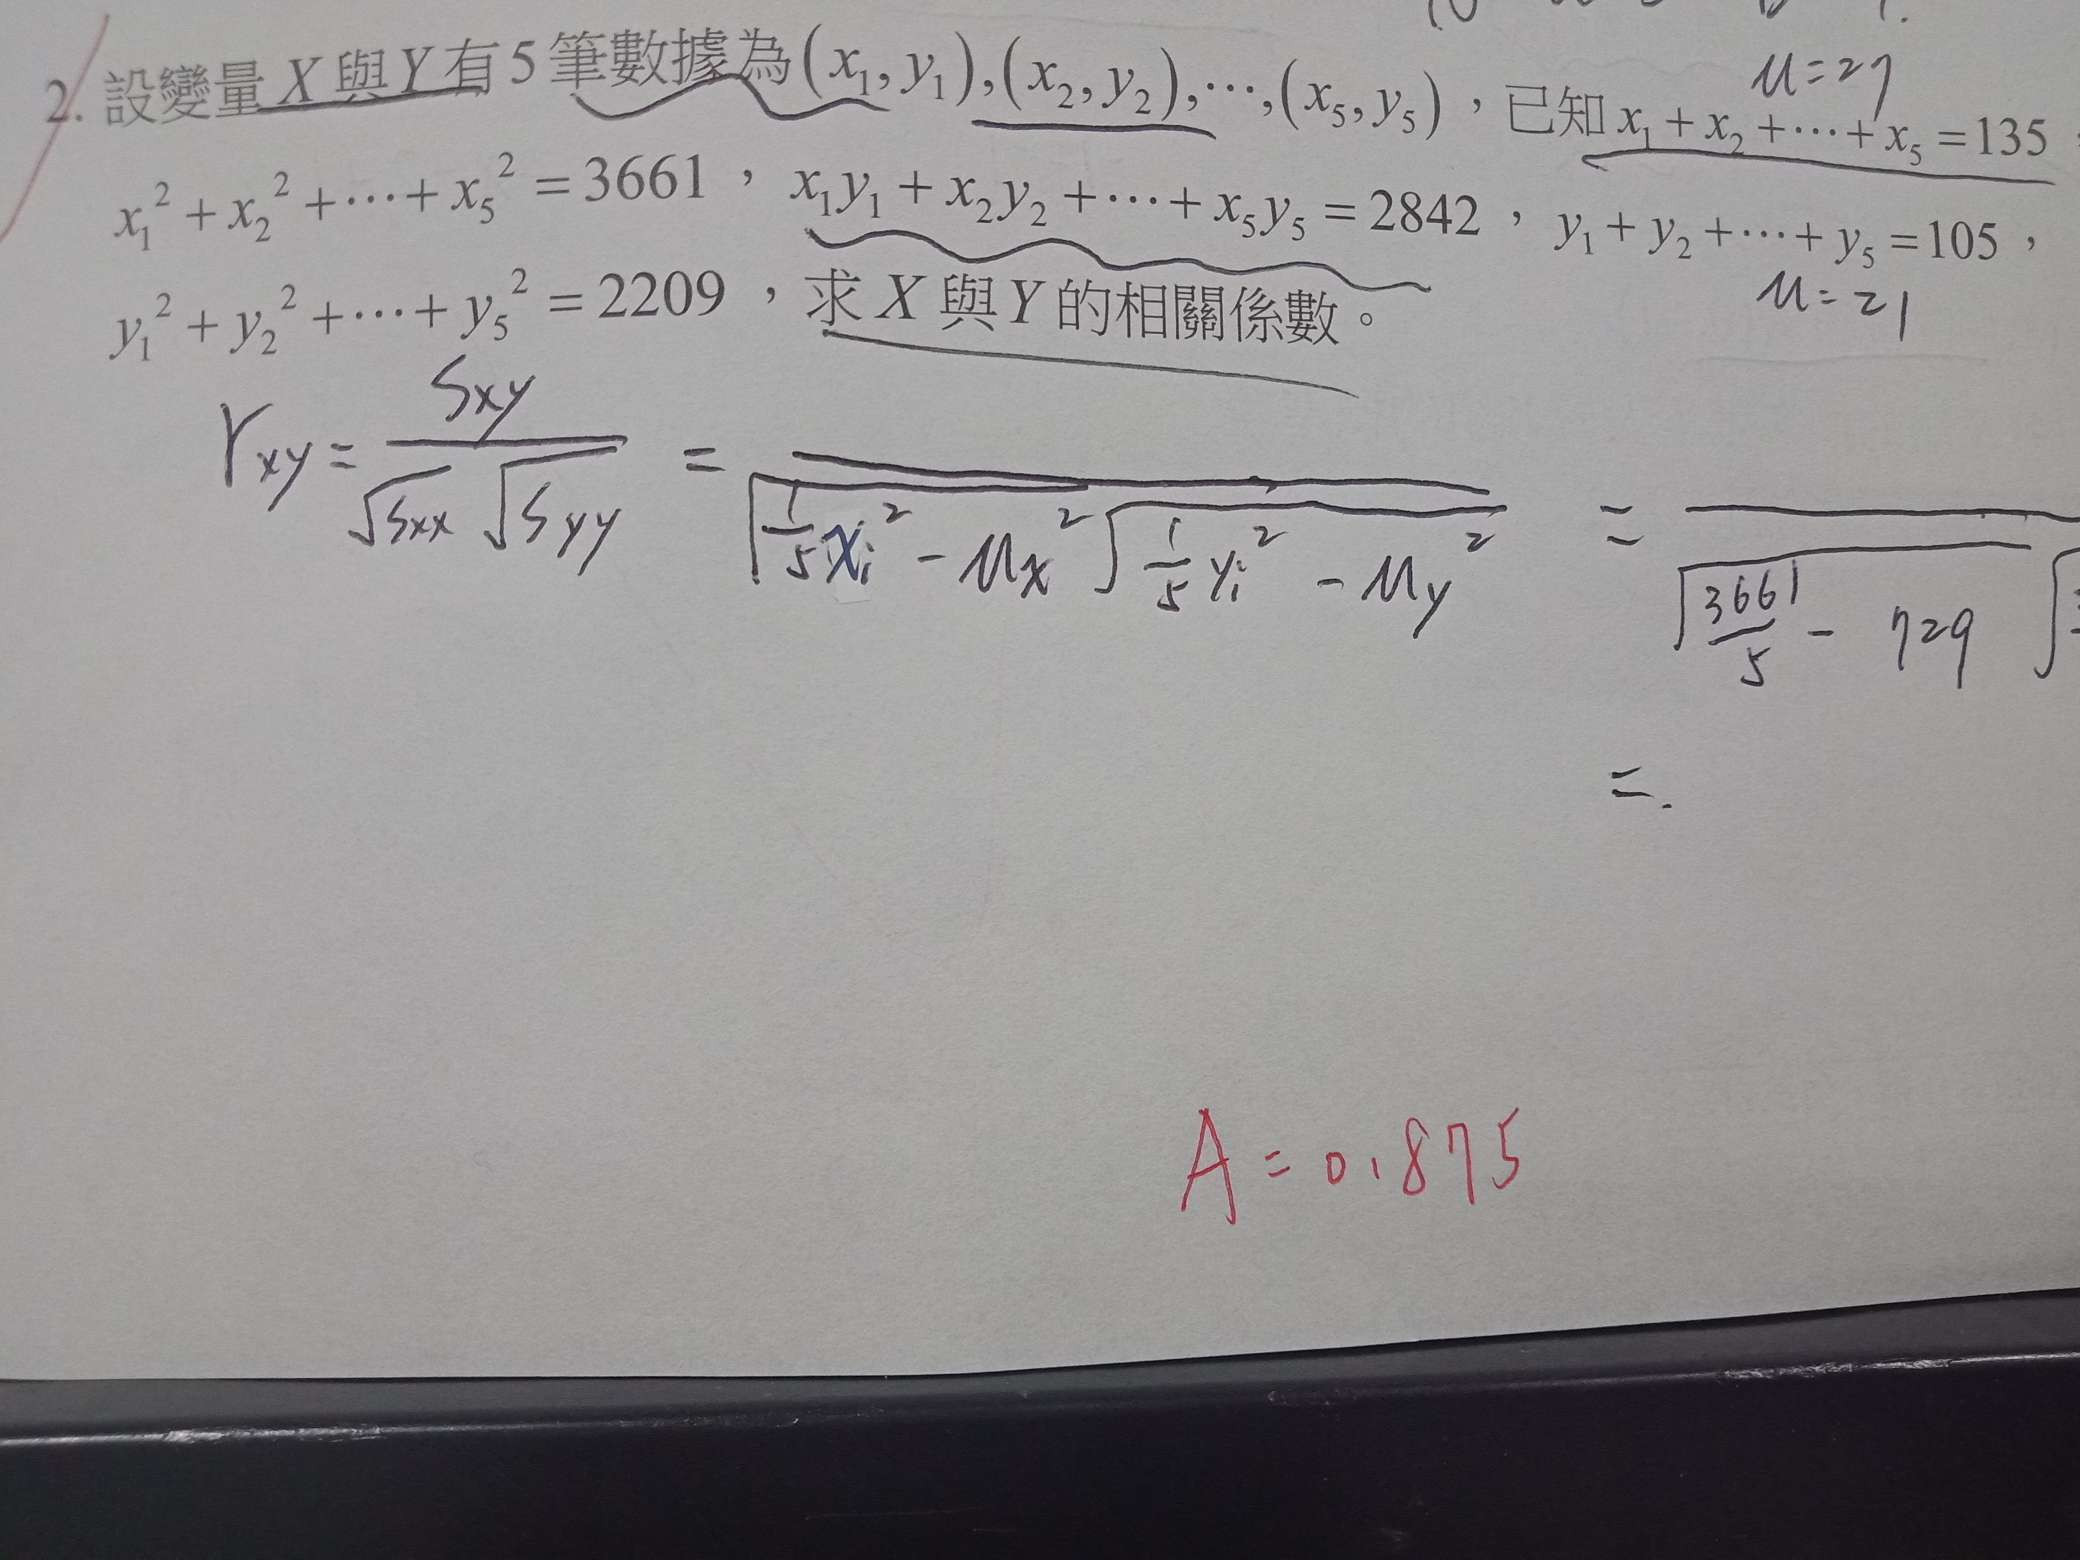 μ=27
2. 設變量 X 與 Y 有 5 筆數據為 (x₁, y₁), (x₂, y₂), ⋯, (x₅, y₅)，已知 x₁ + x₂ + ⋯ + x₅ = 135，
x₁² + x₂² + ⋯ + x₅² = 3661，x₁y₁ + x₂y₂ + ⋯ + x₅y₅ = 2842，y₁ + y₂ + ⋯ + y₅ = 105，
y₁² + y₂² + ⋯ + y₅² = 2209，求 X 與 Y 的相關係數。
μ=21
r_xy = Sxy / (√Sxx √Syy) = / (√(1/5 xᵢ² - μx²) √(1/5 yᵢ² - μy²)) = / (√(3661/5 - 729) √
=.
A = 0.875